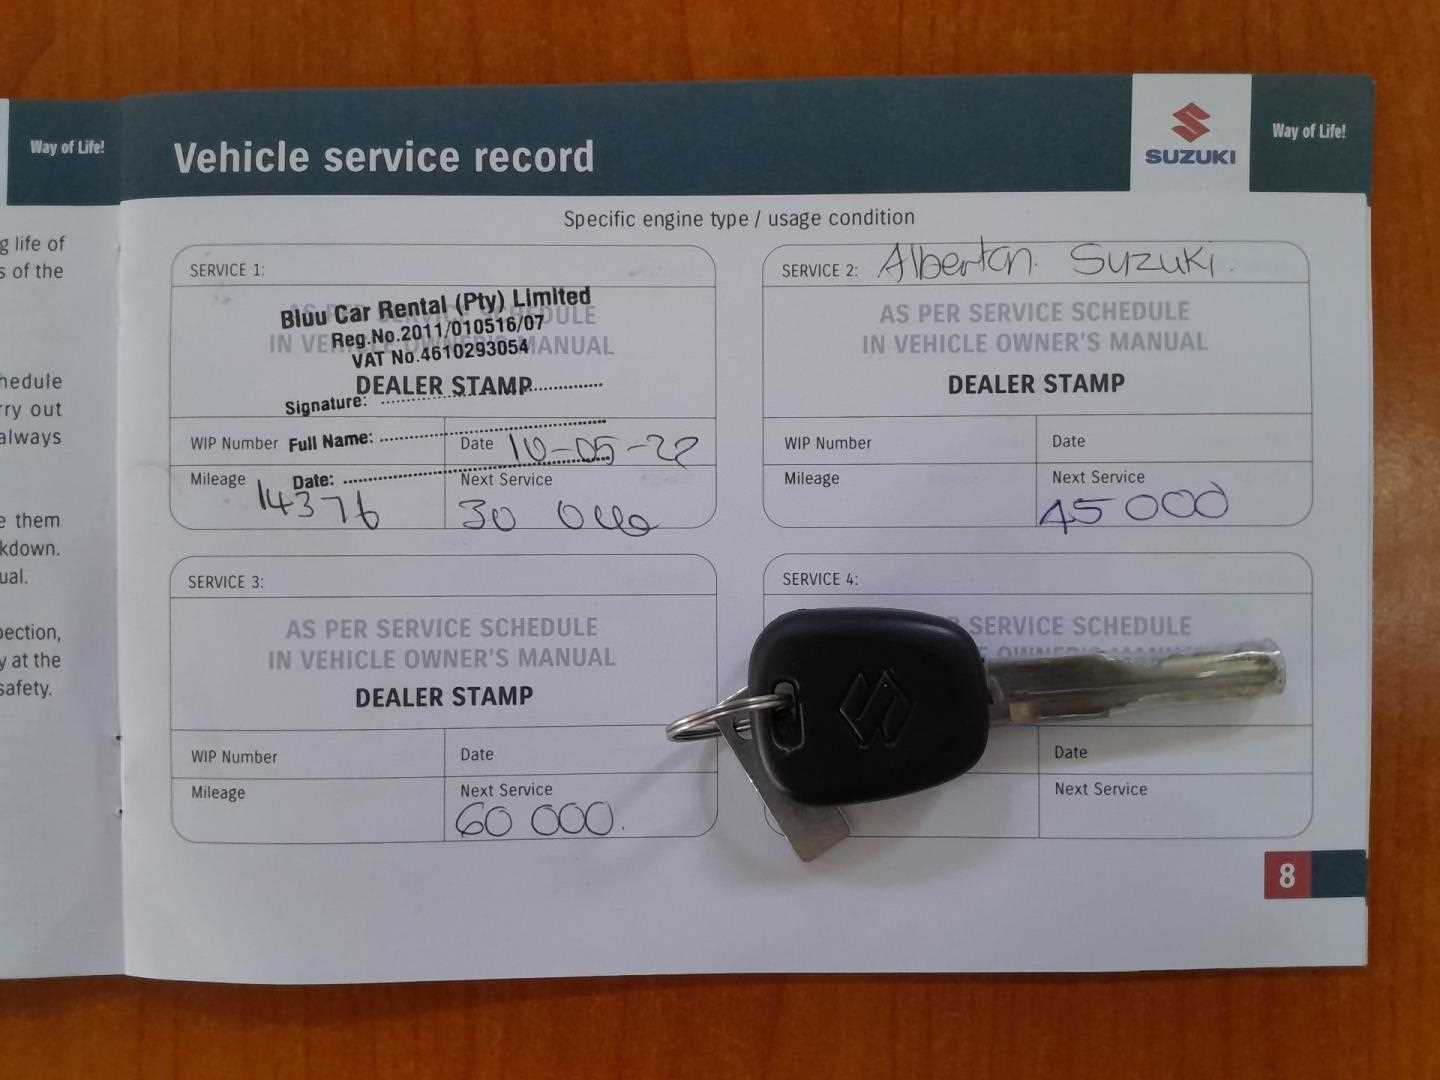 Way of Life!
g life of
s of the
hedule
rry out
always
e them
kdown.
ual.
pection,
y at the
safety.
Vehicle service record
SUZUKI
Way of Life!
Specific engine type / usage condition
SERVICE 1:
AS PER SERVICE SCHEDULE
IN VEHICLE OWNER'S MANUAL
DEALER STAMP
Bluu Car Rental (Pty) Limited
Reg.No.2011/010516/07
VAT No.4610293054
Signature:
Full Name:
Date:
WIP Number
Date 10-05-22
Mileage 14376
Next Service 30 000
SERVICE 2: Alberton Suzuki.
AS PER SERVICE SCHEDULE
IN VEHICLE OWNER'S MANUAL
DEALER STAMP
WIP Number
Date
Mileage
Next Service 45 000
SERVICE 3:
AS PER SERVICE SCHEDULE
IN VEHICLE OWNER'S MANUAL
DEALER STAMP
WIP Number
Date
Mileage
Next Service 60 000.
SERVICE 4:
SERVICE SCHEDULE
Date
Next Service
8